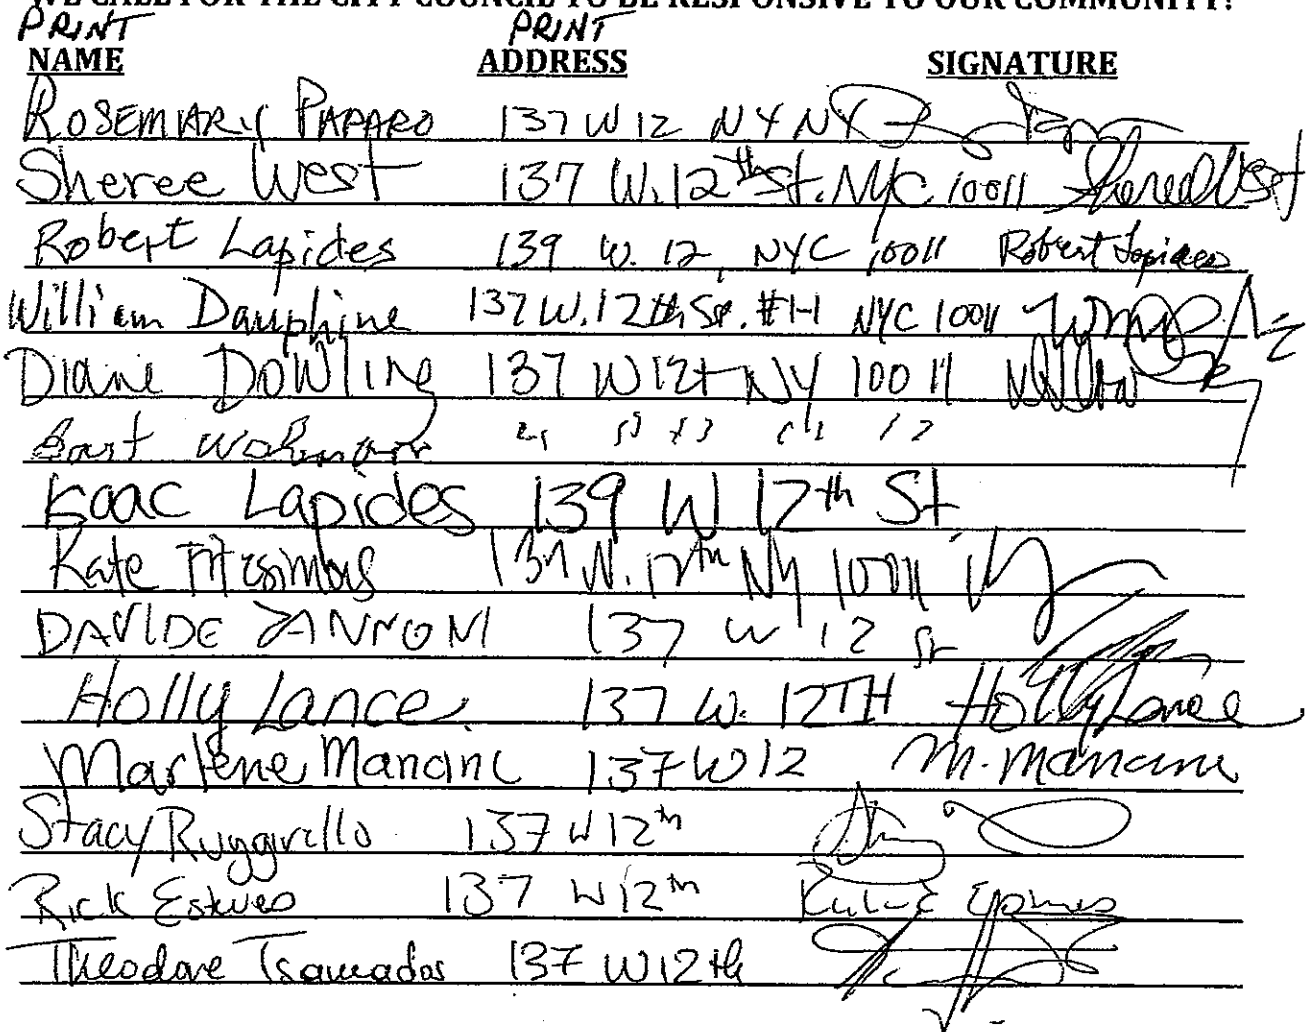 WE CALL FOR THE CITY COUNCIL TO BE RESPONSIVE TO OUR COMMUNITY!
PRINT PRINT
NAME ADDRESS SIGNATURE
ROSEMARY PAPARO 137 W 12 NY NY
Sheree West 137 W. 12th St. NYC 10011 Sheree West
Robert Lapides 139 W. 12, NYC 10011 Robert Lapides
William Dauphine 137 W. 12th St. #1-1 NYC 10011
Diane Dowling 137 W 12t NY 10011
" " " " "
Isaac Lapides 139 W 12th St
Kate Fitzsimons 137 W. 12th NY 10011
DAVIDE ZANNONI 137 W 12 St
Holly Lance. 137 W. 12TH Holly Lance
Marlene Mancini 137 W 12 M. Mancini
Stacy Ruggirello 137 W 12th
Rick Esteves 137 W 12th
Theodore Tsamados 137 W 12th